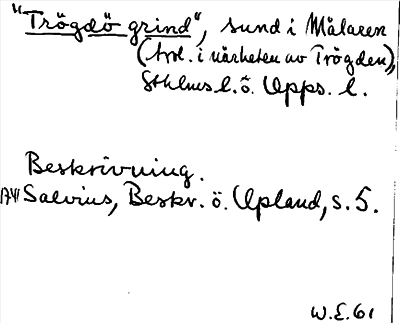 "Trögdö grind", sund i Mälaren
(trol. i närheten av Trögden),
Sthlms l. o. Upps. l.
Beskrivning.
Salvius, Beskr. ö. Upland, s. 5.
W.E. 61